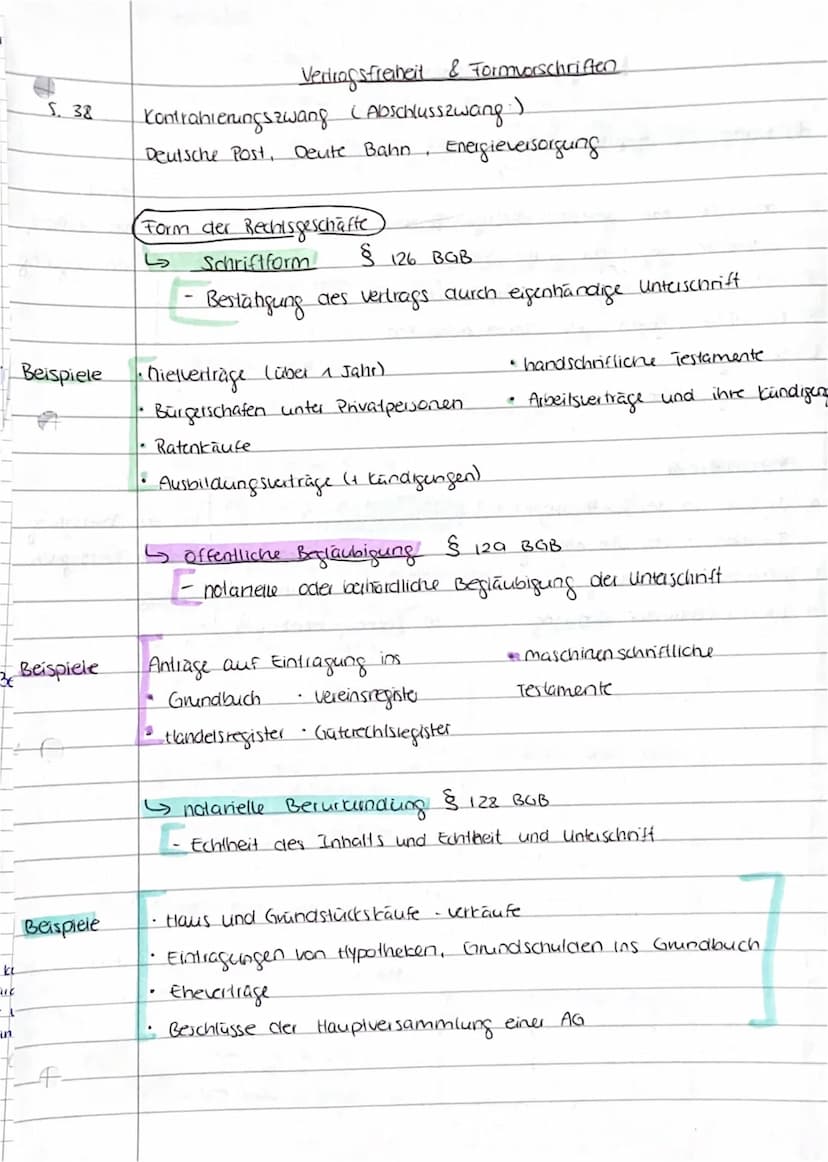 Vertragsfreiheit & Formvorschriften
S. 38 Kontrahierungszwang (Abschlusszwang)
Deutsche Post, Deute Bahn, Energieversorgung
Form der Rechtsgeschäfte
↳ Schriftform § 126 BGB
- Bestätigung des Vertrags durch eigenhändige Unterschrift
Beispiele • Mietverträge (über 1 Jahr) • handschriftliche Testamente
• Bürgerschafen unter Privatpersonen • Arbeitsverträge und ihre Kündigung
• Ratenkäufe
• Ausbildungsverträge (+ Kündigungen)
↳ Öffentliche Begläubigung § 129 BGB
- notarielle oder behördliche Begläubigung der Unterschrift
Beispiele Anträge auf Eintragung ins • maschinenschriftliche
• Grundbuch • Vereinsregister Testamente
• Handelsregister • Güterrechtsregister
↳ notarielle Berurkundung § 128 BGB
- Echtheit des Inhalts und Echtheit und Unterschrift
Beispiele • Haus und Grundstückskäufe - verkäufe
• Eintragungen von Hypotheken, Grundschulden ins Grundbuch
• Eheverträge
• Beschlüsse der Hauptversammlung einer AG